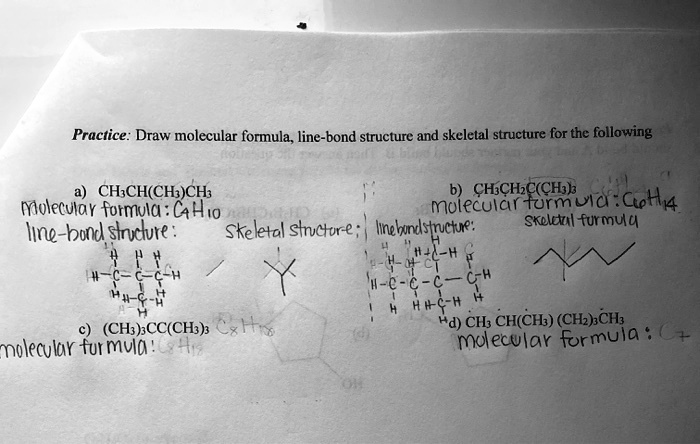 Practice: Draw molecular formula, line-bond structure and skeletal structure for the following
a) CH₃CH(CH₃)CH₃
molecular formula: C₄H₁₀
line-bond structure:
Skeletal structure:
H H H
H-C-C-C-H
H H-C-H H
H
b) CH₃CH₂C(CH₃)₃
molecular formula: C₆H₁₄
line bond structure:
Skeletal formula
H
H-C-H H
H-C-C-C-C-H
H H H-C-H H
H
c) (CH₃)₃CC(CH₃)₃ C₈H₁₈
molecular formula: C₈H₁₈
d) CH₃ CH(CH₃) (CH₂)₃CH₃
molecular formula: C₇
OH